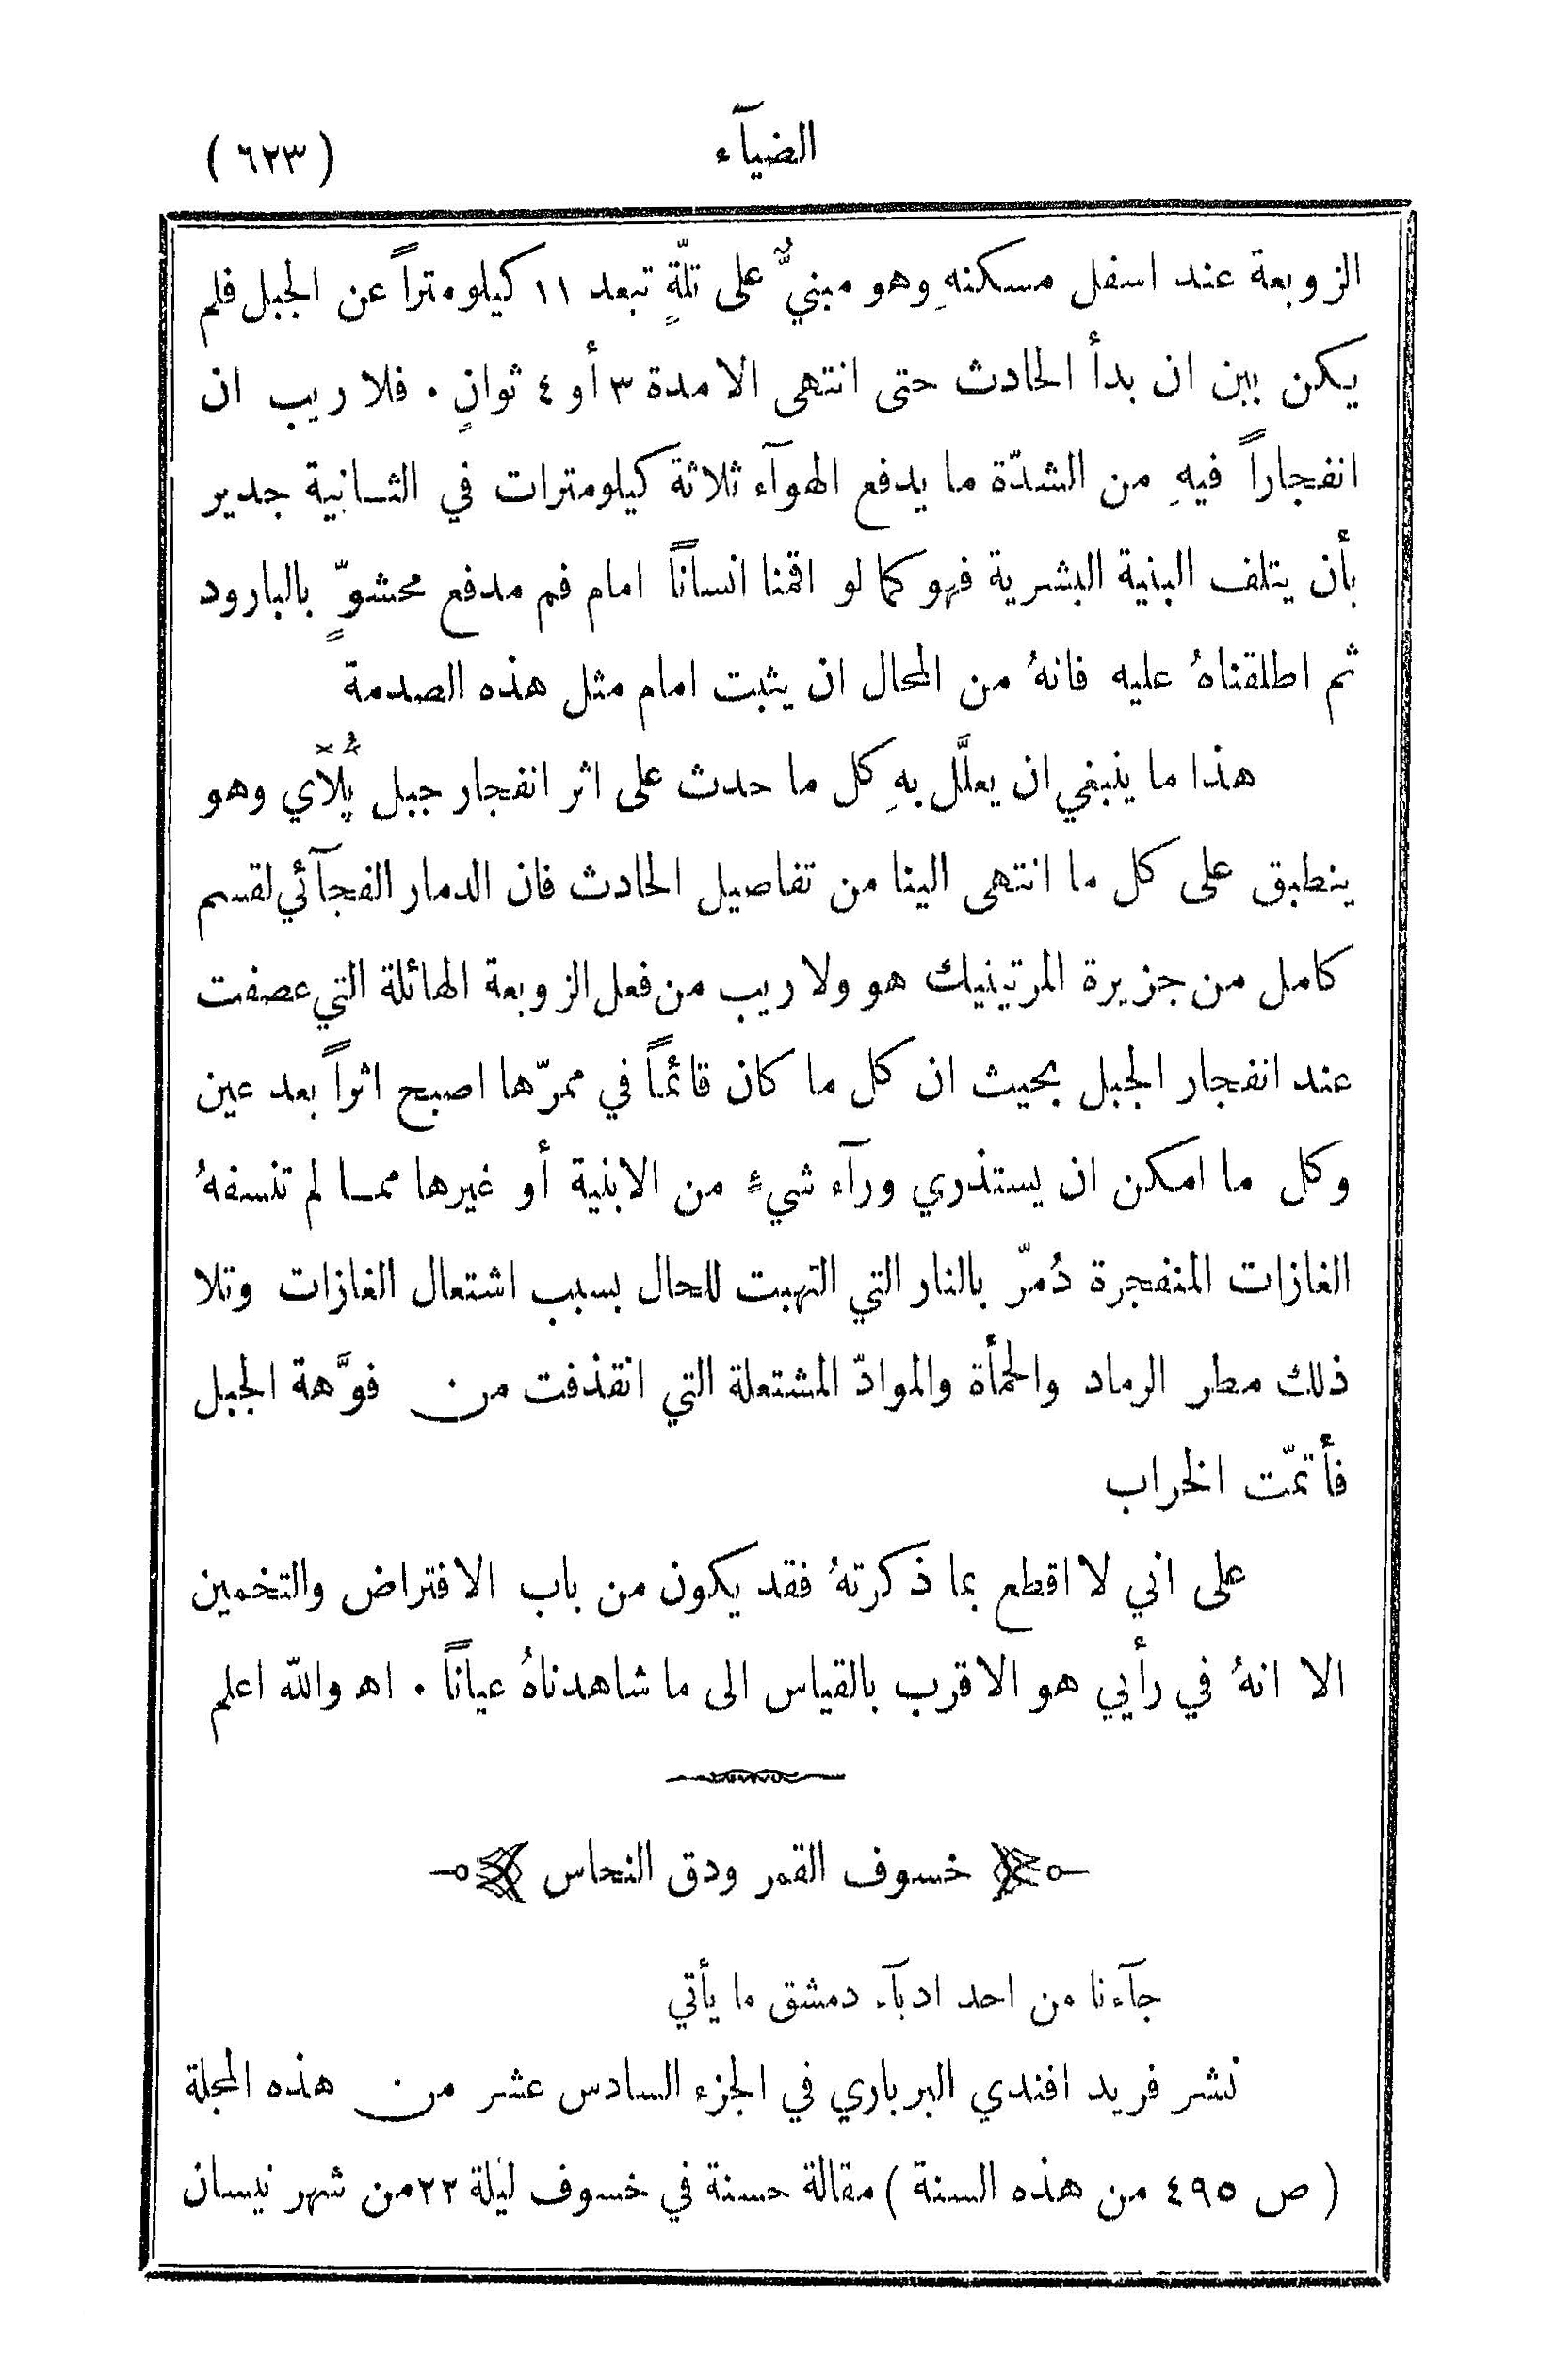 الضيآء
( ٦٢٣ )
الزوبعة عند اسفل مسكنهِ وهو مبنيٌّ على تلّةٍ تبعد ١١ كيلومتراً عن الجبل فلم
يكن بين ان بدأ الحادث حتى انتهى الا مدة ٣ أو ٤ ثوانٍ . فلا ريب ان
انفجاراً فيهِ من الشدّة ما يدفع الهوآء ثلاثة كيلومترات في الثـانية جدير
بأن يتلف البنية البشرية فهو كما لو اقمنا انساناً امام فم مدفع محشوٍّ بالبارود
ثم اطلقناهُ عليه فانهُ من المحال ان يثبت امام مثل هذه الصدمة
هذا ما ينبغي ان يعلَّل بهِ كل ما حدث على اثر انفجار جبل پُلآي وهو
ينطبق على كل ما انتهى الينا من تفاصيل الحادث فان الدمار الفجآئي لقسم
كامل من جزيرة المرتينيك هو ولا ريب من فعل الزوبعة الهائلة التي عصفت
عند انفجار الجبل بحيث ان كل ما كان قائماً في ممرّها اصبح اثراً بعد عين
وكل ما امكن ان يستذري ورآء شيءٍ من الابنية أو غيرها ممـا لم تنسفهُ
الغازات المنفجرة دُمّر بالنار التي التهبت للحال بسبب اشتعال الغازات وتلا
ذلك مطر الرماد والحمأة والموادّ المشتعلة التي انقذفت من فوَّهة الجبل
فأتمّت الخراب
على اني لا اقطع بما ذكرتهُ فقد يكون من باب الافتراض والتخمين
الا انهُ في رأيي هو الاقرب بالقياس الى ما شاهدناهُ عياناً . اه والله اعلم
خسوف القمر ودق النحاس
جآءنا من احد ادبآء دمشق ما يأتي
نشر فريد افندي البرباري في الجزء السادس عشر من هذه المجلة
( ص ٤٩٥ من هذه السنة ) مقالة حسنة في خسوف ليلة ٢٢ من شهر نيسان